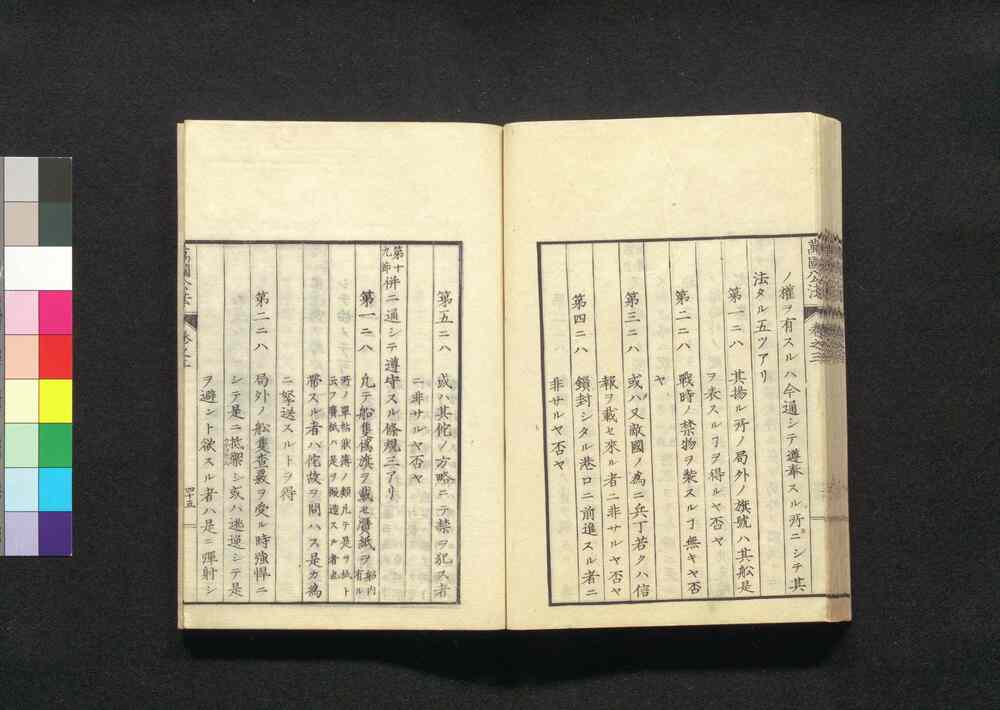 萬國公法
卷之三
ノ權ヲ有スルハ今通シテ遵奉スル所ニシテ其
法タル五ツアリ
第一ニハ 其揚ル所ノ局外ノ旗號ハ其舩是
ヲ表スルヿヲ得ルヤ否ヤ
第二ニハ 戰時ノ禁物ヲ装スルヿ無キヤ否
ヤ
第三ニハ 或ハ又敵國ノ為ニ兵丁若クハ信
報ヲ載セ來ル者ニ非サルヤ否ヤ
第四ニハ 鎖封シタル巷口ニ前進スル者ニ
非サルヤ否ヤ
第五ニハ 或ハ其佗ノ方略ニテ禁ヲ犯ス者
ニ非サルヤ否ヤ
第十九節 併ニ通シテ遵守スル條規三アリ
第一ニハ 凡テ舩隻僞旗ヲ載セ贋紙ヲ 舩内有ル
所ノ單帖狀簿ノ類凡テ是ヲ紙ト
云フ贋紙ハ是ヲ贋造スル者也
帶スル者ハ佗故ヲ問ハス是カ為
ニ拏送スルトヲ得
第二ニハ 局外ノ舩隻查覈ヲ受ル時強悍ニ
シテ是ニ抵禦シ或ハ逃逆シテ是
ヲ避シト欲スル者ハ是ニ彈射シ
萬國公法
卷之三
四十五